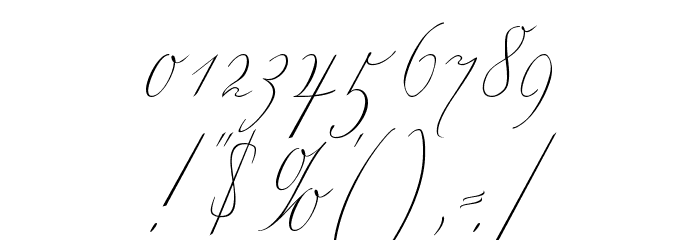 0123456789
!"$%'(),=./